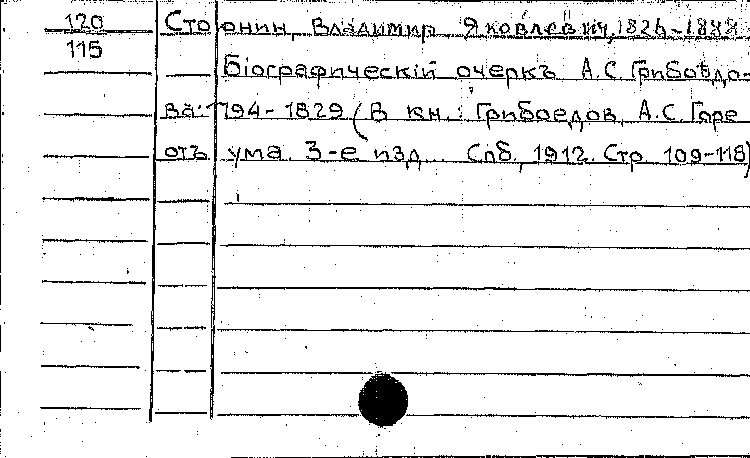 120 Стоюнин, Владимир Яковлевич, 1826-1888
115
Біографическій очеркъ А.С. Грибоѣдо-
ва: 1794-1829 (В кн.: Грибоедов, А.С. Горе
отъ ума. 3-е изд... Спб, 1912. Стр. 109-118)